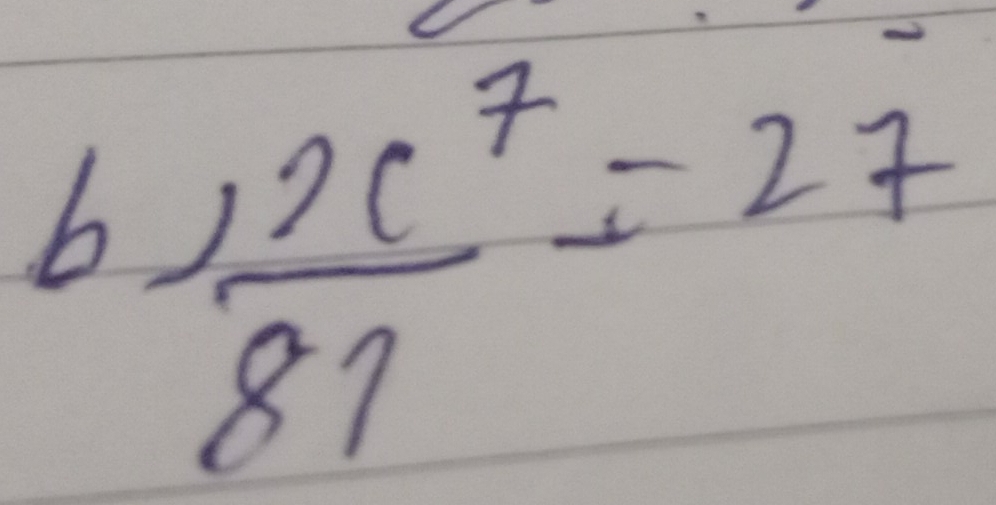 b) x⁷/81 = 27